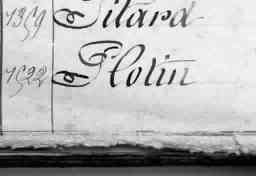 1359 Pitard
1522 Plotin